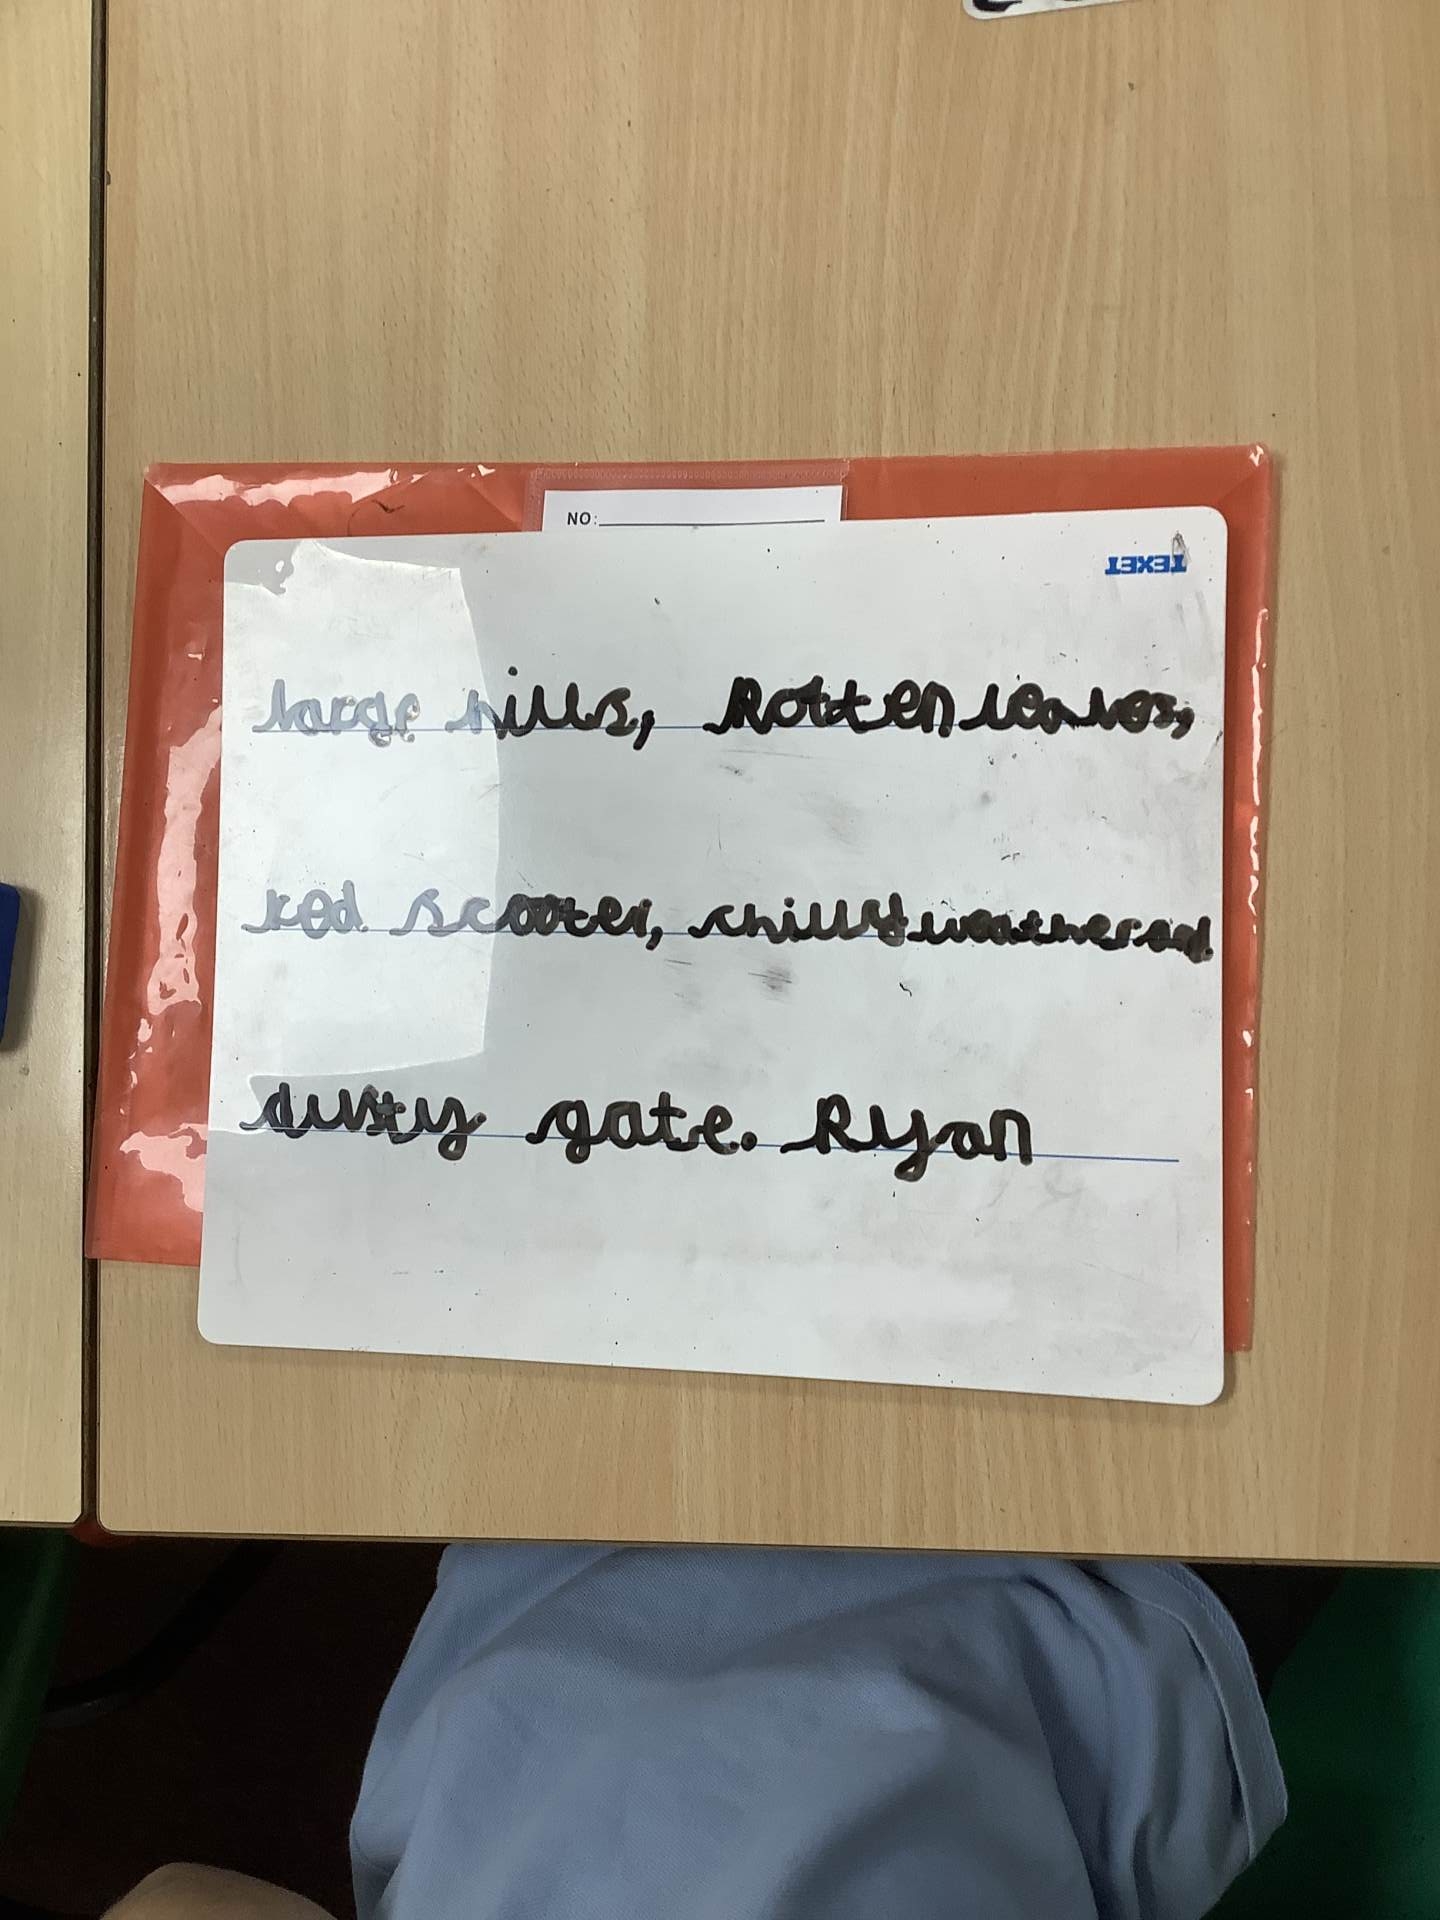 NO:
TEXET
large hills, Rotten leaves,
red scooter, chilly weather and
dusty gate. Ryan